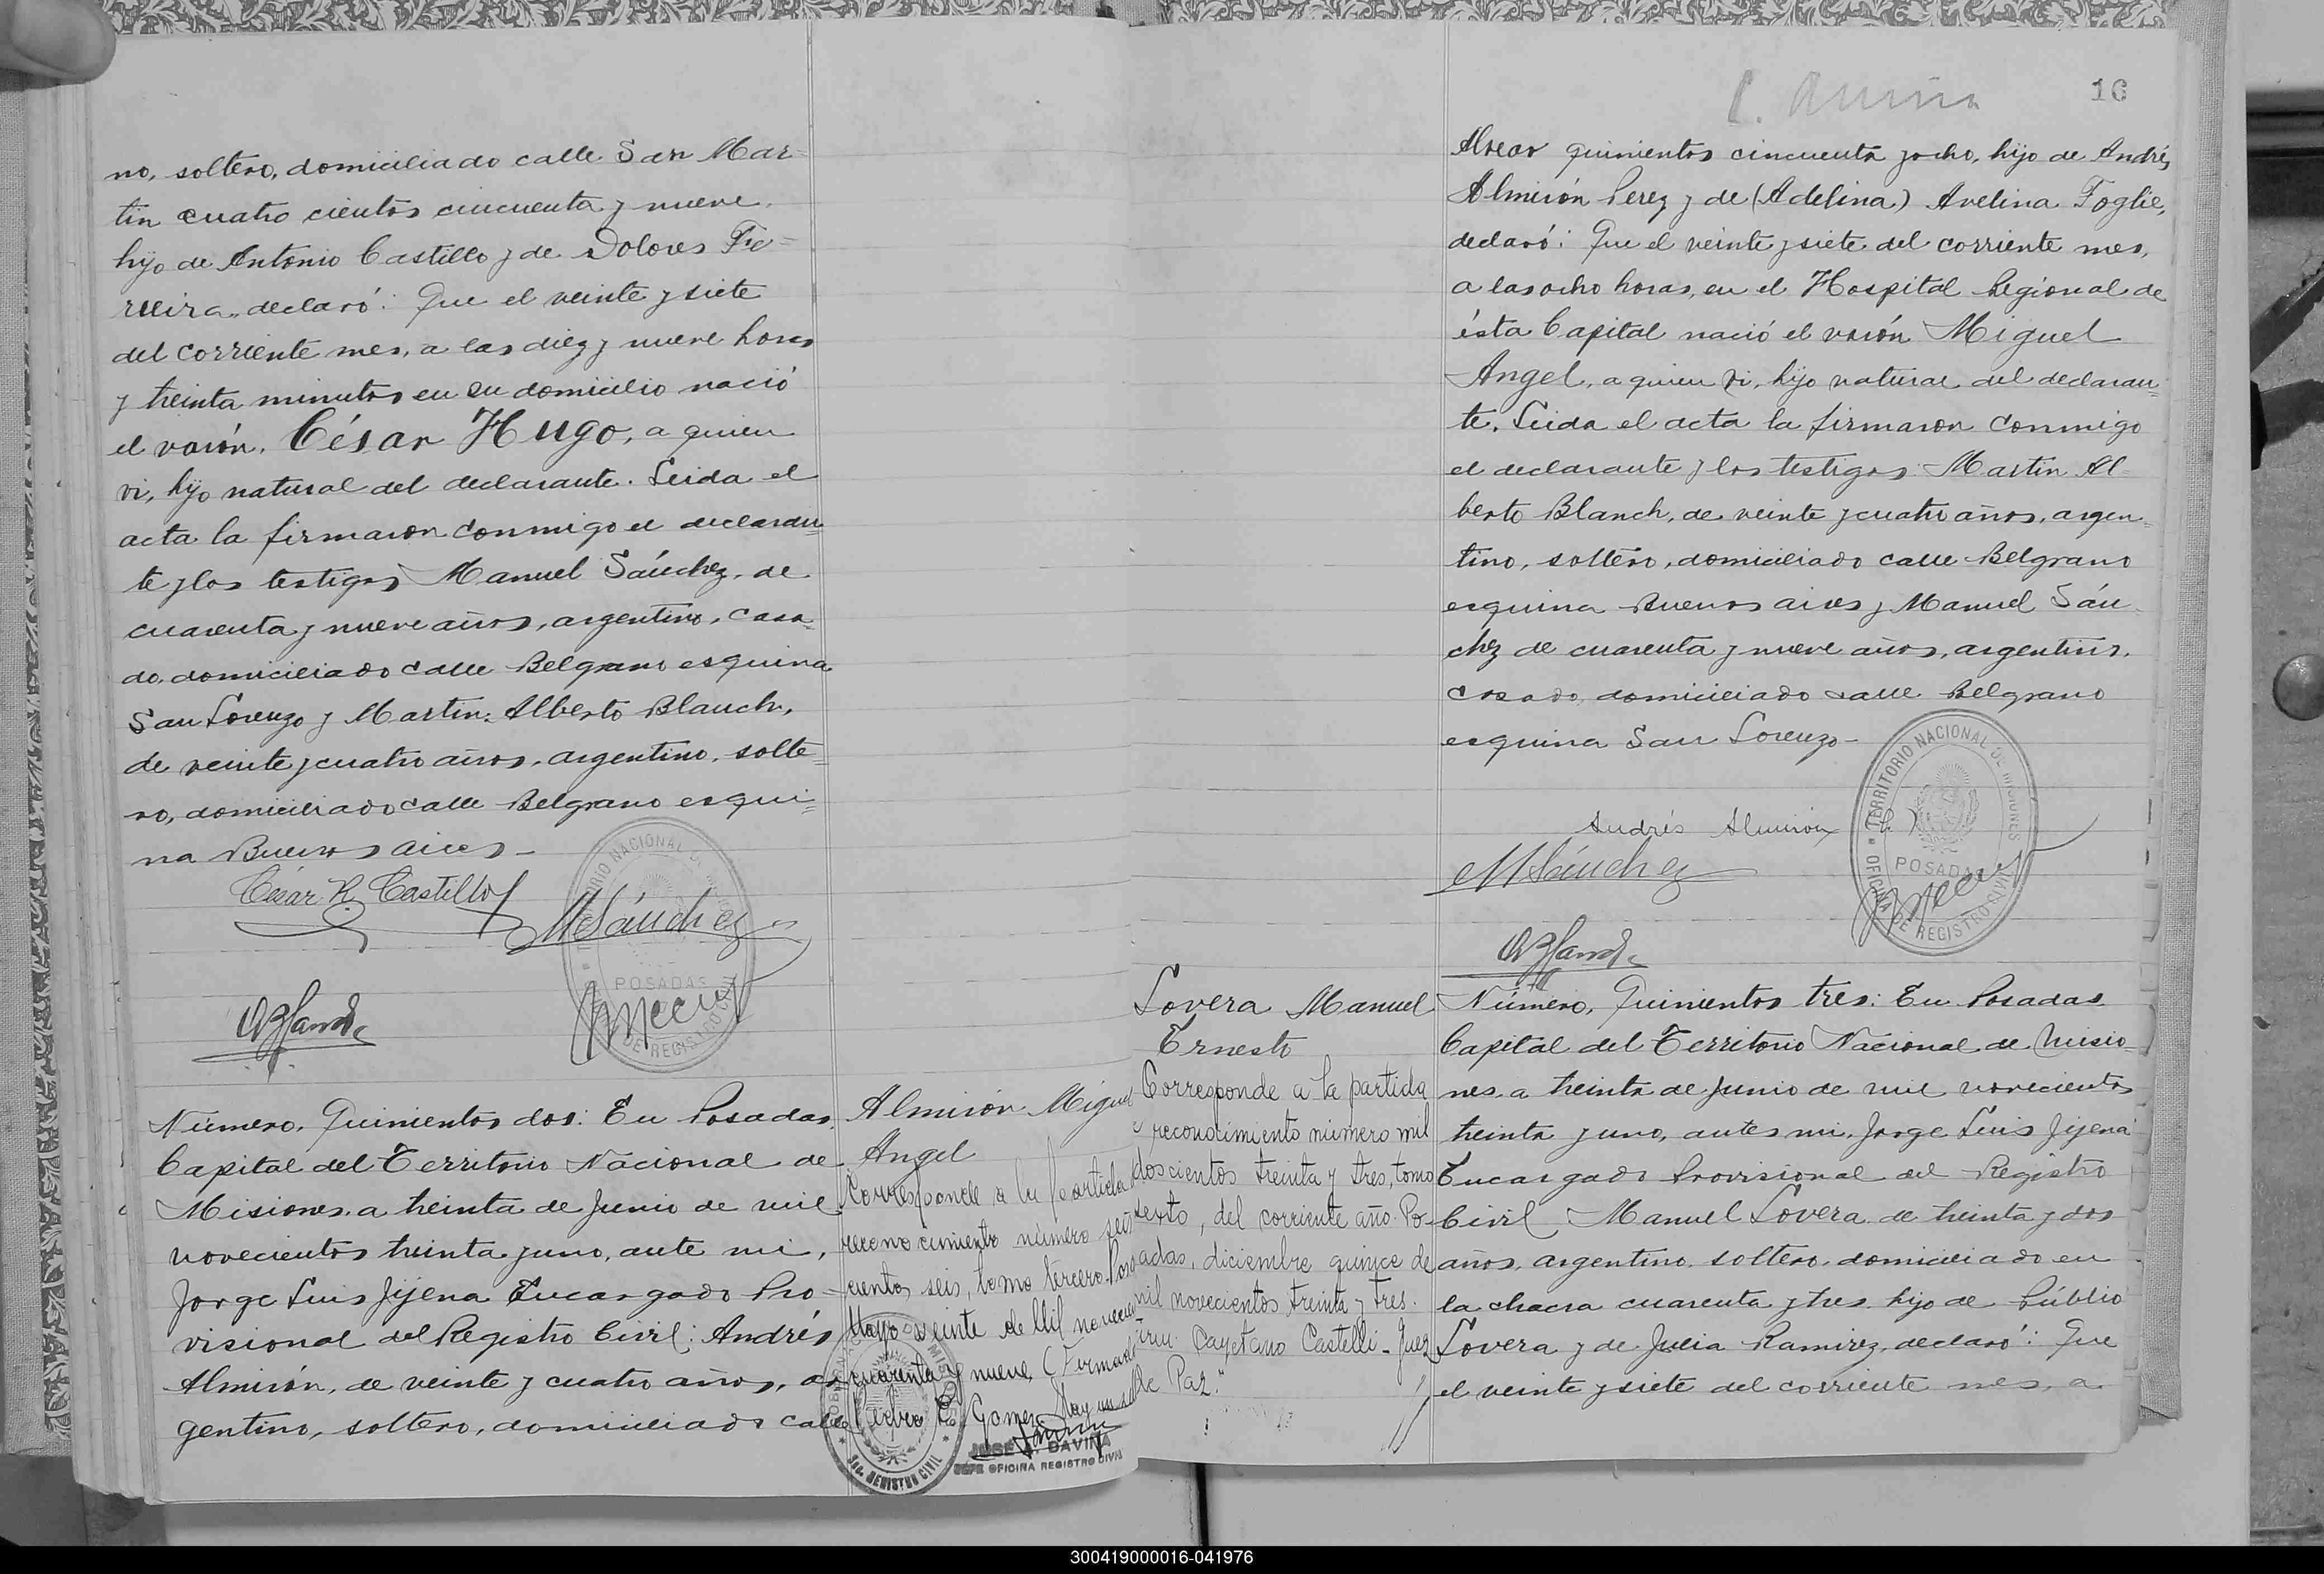 no, soltero, domiciliado calle San Mar=
tin cuatro cientos cincuenta y nueve,
hijo de Antonio Castillo y de Dolores Fe=
rreira, declaró: Que el veinte y siete
del corriente mes, a las diez y nueve horas
y treinta minutos en su domicilio nació
el varón, César Hugo, a quien
vi, hijo natural del declarante. Leida el
acta la firmaron conmigo el declaran=
te y los testigos Manuel Sánchez, de
cuarenta y nueve años, argentino, casa=
do, domiciliado calle Belgrano esquina
San Lorenzo y Martin Alberto Blanch,
de veinte y cuatro años, argentino, solte=
ro, domiciliado calle Belgrano esqui=
na Buenos aires-
César H. Castillo
MSánchez
TERRITORIO NACIONAL DE MISIONES
POSADAS
OFICINA DE REGISTRO CIVIL
Número, Quinientos dos: En Posadas,
Capital del Territorio Nacional de
Misiones, a treinta de Junio de mil
novecientos treinta y uno, ante mi,
Jorge Luis Jijena Encargado Pro=
visional del Registro Civil: Andrés
Almirón, de veinte y cuatro años, ar
gentino, soltero, domiciliado calle
Almirón Miguel
Angel
Corresponde a la partida
reconocimiento número seis
cientos seis, tomo tercero. Posa
Mayo veinte de Mil novecien
cuarenta y nueve, (Firmado
Gomez. Hay un sello
JOSE A. DAVIÑA
JEFE OFICINA REGISTRO CIVIL
SEC. REGISTRO CIVIL
16
Alvear quinientos cincuenta y ocho, hijo de Andrés
Almirón Perez y de (Adelina) Avelina Foglie,
declaró: Que el veinte y siete del corriente mes,
a las ocho horas, en el Hospital Regional de
ésta Capital nació el varón Miguel
Angel, a quien vi, hijo natural del declaran=
te. Leida el acta la firmaron conmigo
el declarante y los testigos: Martin Al=
berto Blanch, de veinte y cuatro años, argen=
tino, soltero, domiciliado calle Belgrano
esquina Buenos aires y Manuel Sán
chez de cuarenta y nueve años, argentino,
casado, domiciliado calle Belgrano
esquina San Lorenzo-
Andrés Almirón
MSánchez
TERRITORIO NACIONAL DE MISIONES
POSADAS
OFICINA DE REGISTRO CIVIL
Lovera Manuel
Ernesto
Corresponde a la partida
reconocimiento número mil
doscientos treinta y tres, tomo
sexto, del corriente año. Po-
sadas, diciembre quince de
mil novecientos treinta y tres.
Firm. Cayetano Castelli - Juez
de Paz."
Número, Quinientos tres: En Posadas
Capital del Territorio Nacional de Misio=
nes, a treinta de Junio de mil novecientos
treinta y uno, antes mi, Jorge Luis Jijena
Encargado Provisional del Registro
Civil, Manuel Lovera de treinta y dos
años, argentino, soltero, domiciliado en
la chacra cuarenta y tres, hijo de Públio
Lovera y de Julia Ramirez, declaró: Que
el veinte y siete del corriente mes, a
300419000016-041976